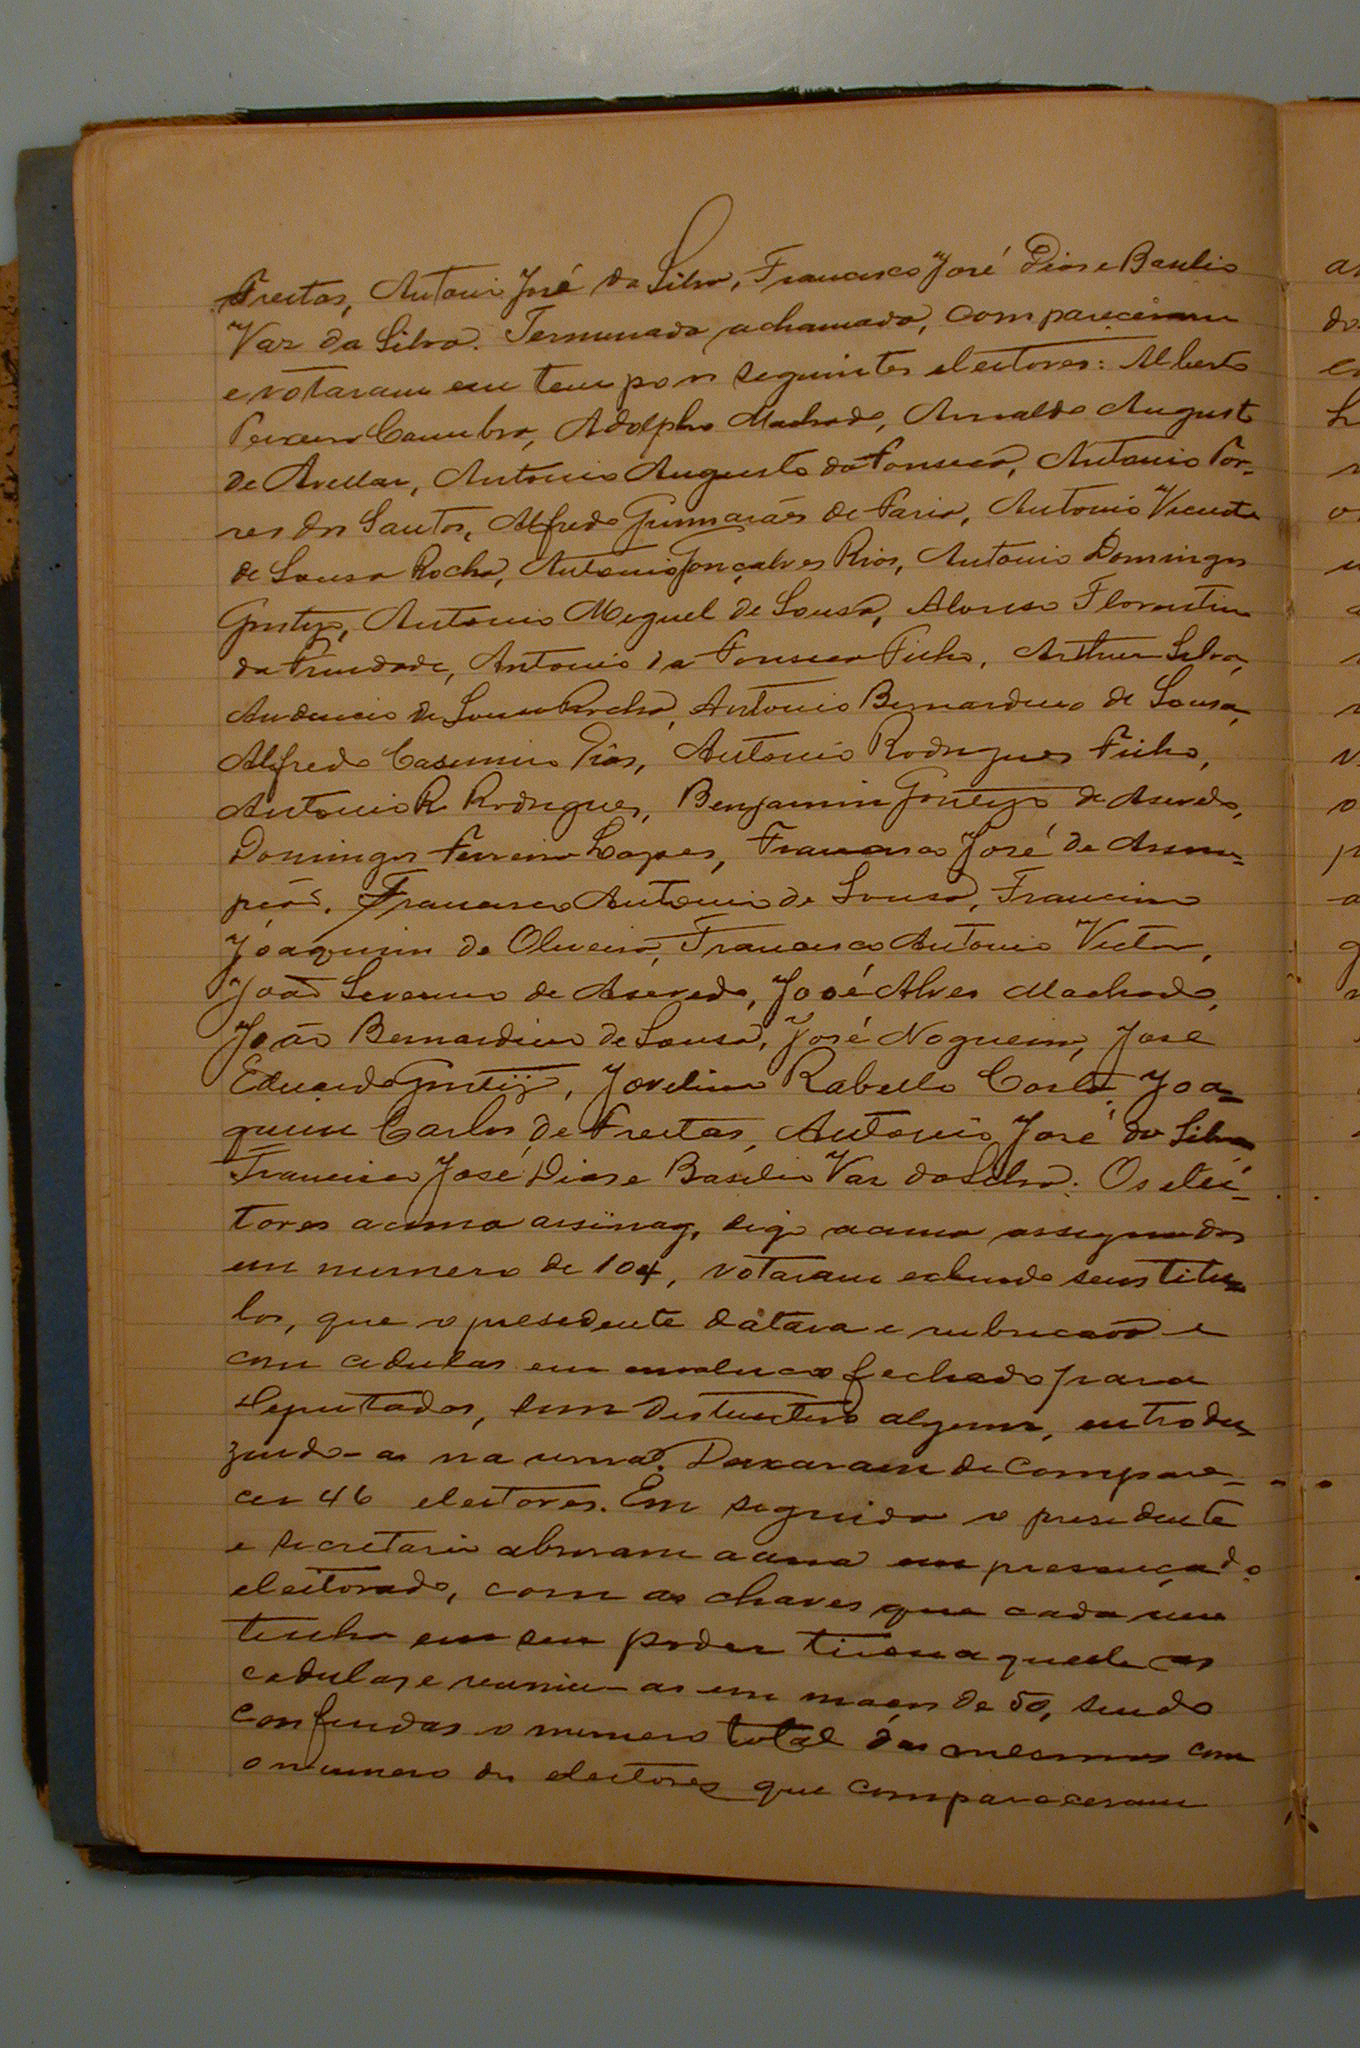 Freitas, Antonio José da Silva, Francisco José Dias e Basilio
Vaz da Silva. Terminada a chamada, compareceram
e votaram em tempo os seguintes eleitores: Alberto
Teixeira Coimbra, Adolpho Machado, Arnaldo Augusto
de Avellar, Antonio Augusto da Fonseca, Antonio Tor-
res dos Santos, Alfredo Guimarães de Faria, Antonio Vicente
de Sousa Rocha, Antonio Gonçalves Rios, Antonio Domingos
Gontijo, Antonio Miguel de Sousa, Alonso Florentino
da Trindade, Antonio da Fonseca Filho, Arthur Silva,
de Sousa Rocha, Antonio Bernardino de Sousa,
Alfredo Casemiro Dias, Antonio Rodrigues Filho,
Antonio R Rodrigues, Benjamin Gontijo de Asevedo,
Domingos Ferreira Lopes, Francisco José de Assum-
peão, Francisco Antonio de Sousa, Francisco
Joaquim de Oliveira, Francisco Antonio Victor,
João Severino de Asevedo, José Alves Machado,
João Bernardino de Sousa, José Nogueira, José
Eduardo Gontijo, Jovelino Rabello Costa, Joa-
quim Carlos de Freitas, Antonio José da Silva
Francisco José Dias e Basilio Vaz da Silva. Os elei-
tores acima assinag, digo acima assignados
em numero de 104, votaram exhindo seus titu-
los, que o presedente datava e rubricava e
com cedulas em envolucro fechado para
deputados, sem destinctivo algum, introdu-
zindo-as na urna. Deixaram de compare-
cer 46 eleitores. Em seguida o presidente
e secretario abriram a urna em presença do
eleitorado, com as chaves que cada um
tinha em seu poder tirou aquelle as
cedulas e reuniu-as em maços de 50, sendo
conferidas o numero total das mesmas com
o numero de eleitores que compareceram